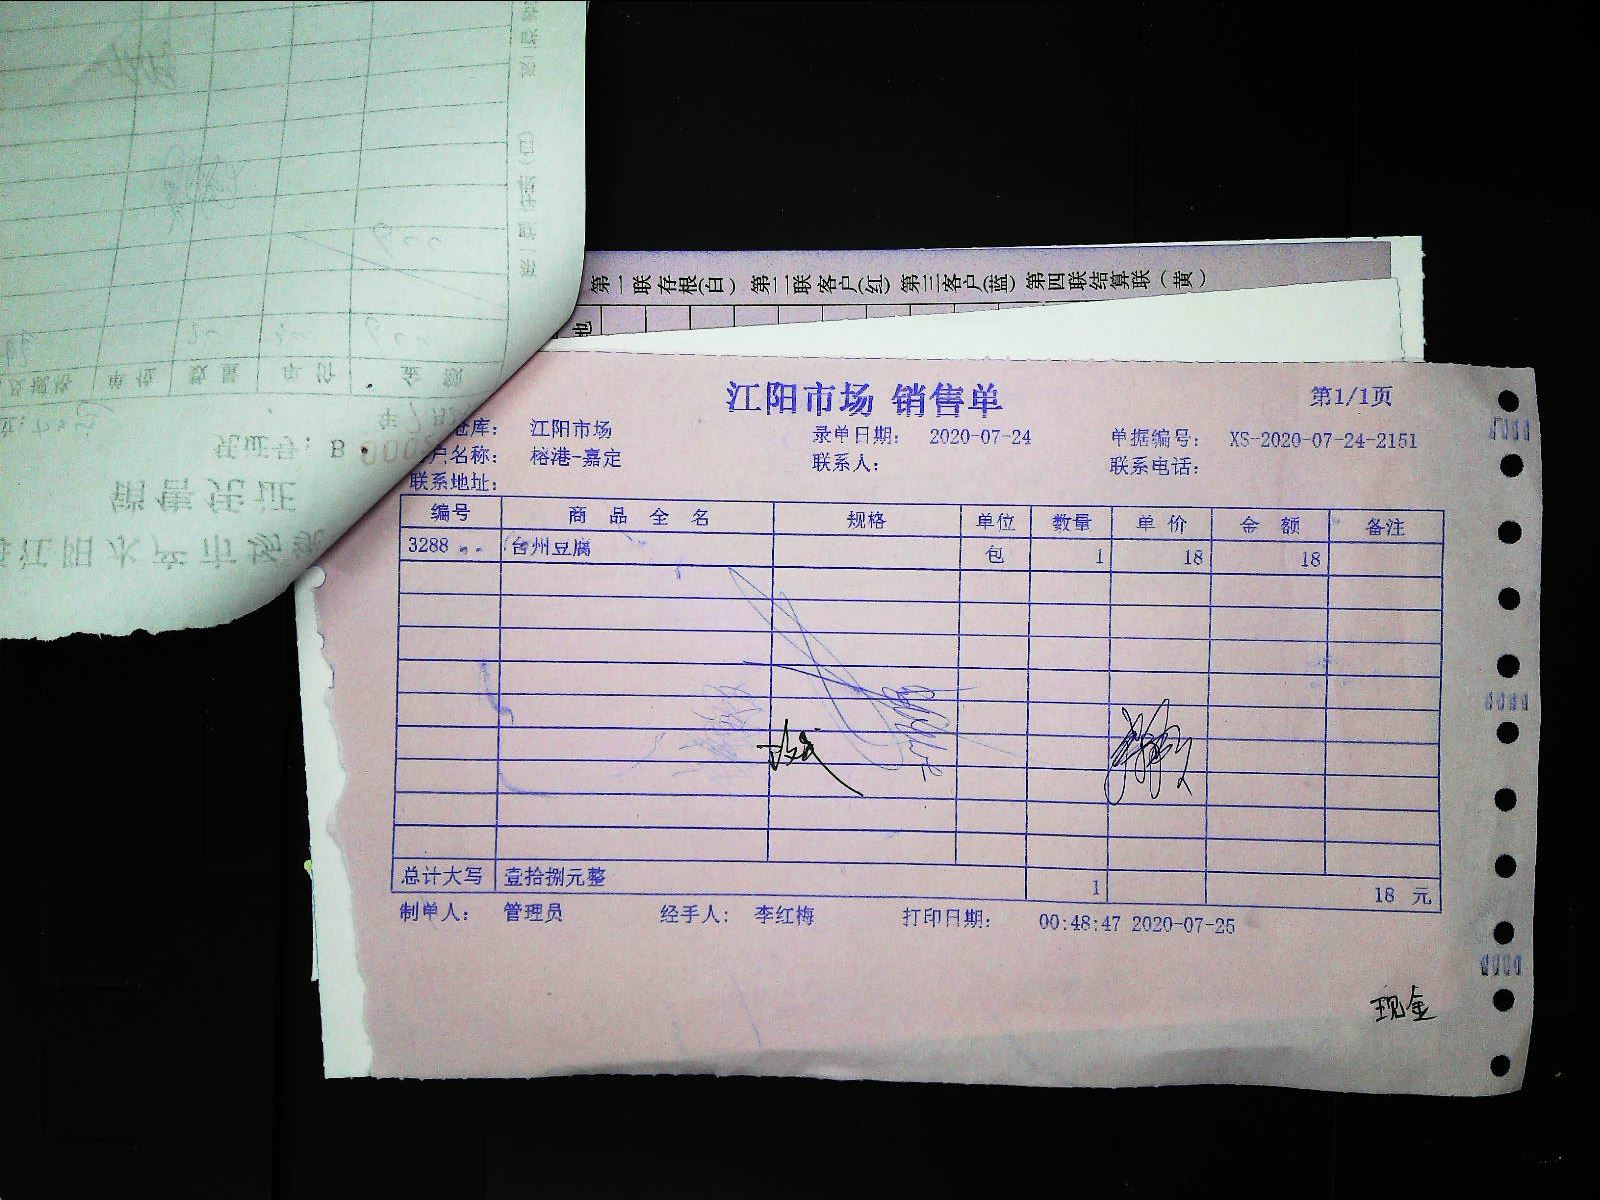 第一联存根(白) 第二联客户(红) 第三客户(蓝) 第四联结算联(黄)
江阳市场 销售单
第1/1页
仓库: 江阳市场 录单日期: 2020-07-24 单据编号: XS-2020-07-24-2151
户名称: 榕港-嘉定 联系人: 联系电话:
联系地址:
编号 商品全名 规格 单位 数量 单价 金额 备注
3288 台州豆腐 包 1 18 18
总计大写 壹拾捌元整 1 18 元
制单人: 管理员 经手人: 李红梅 打印日期: 00:48:47 2020-07-25
现金
销售凭证
凭证号: B
江阳水产市场
单位 数量 单价 金额